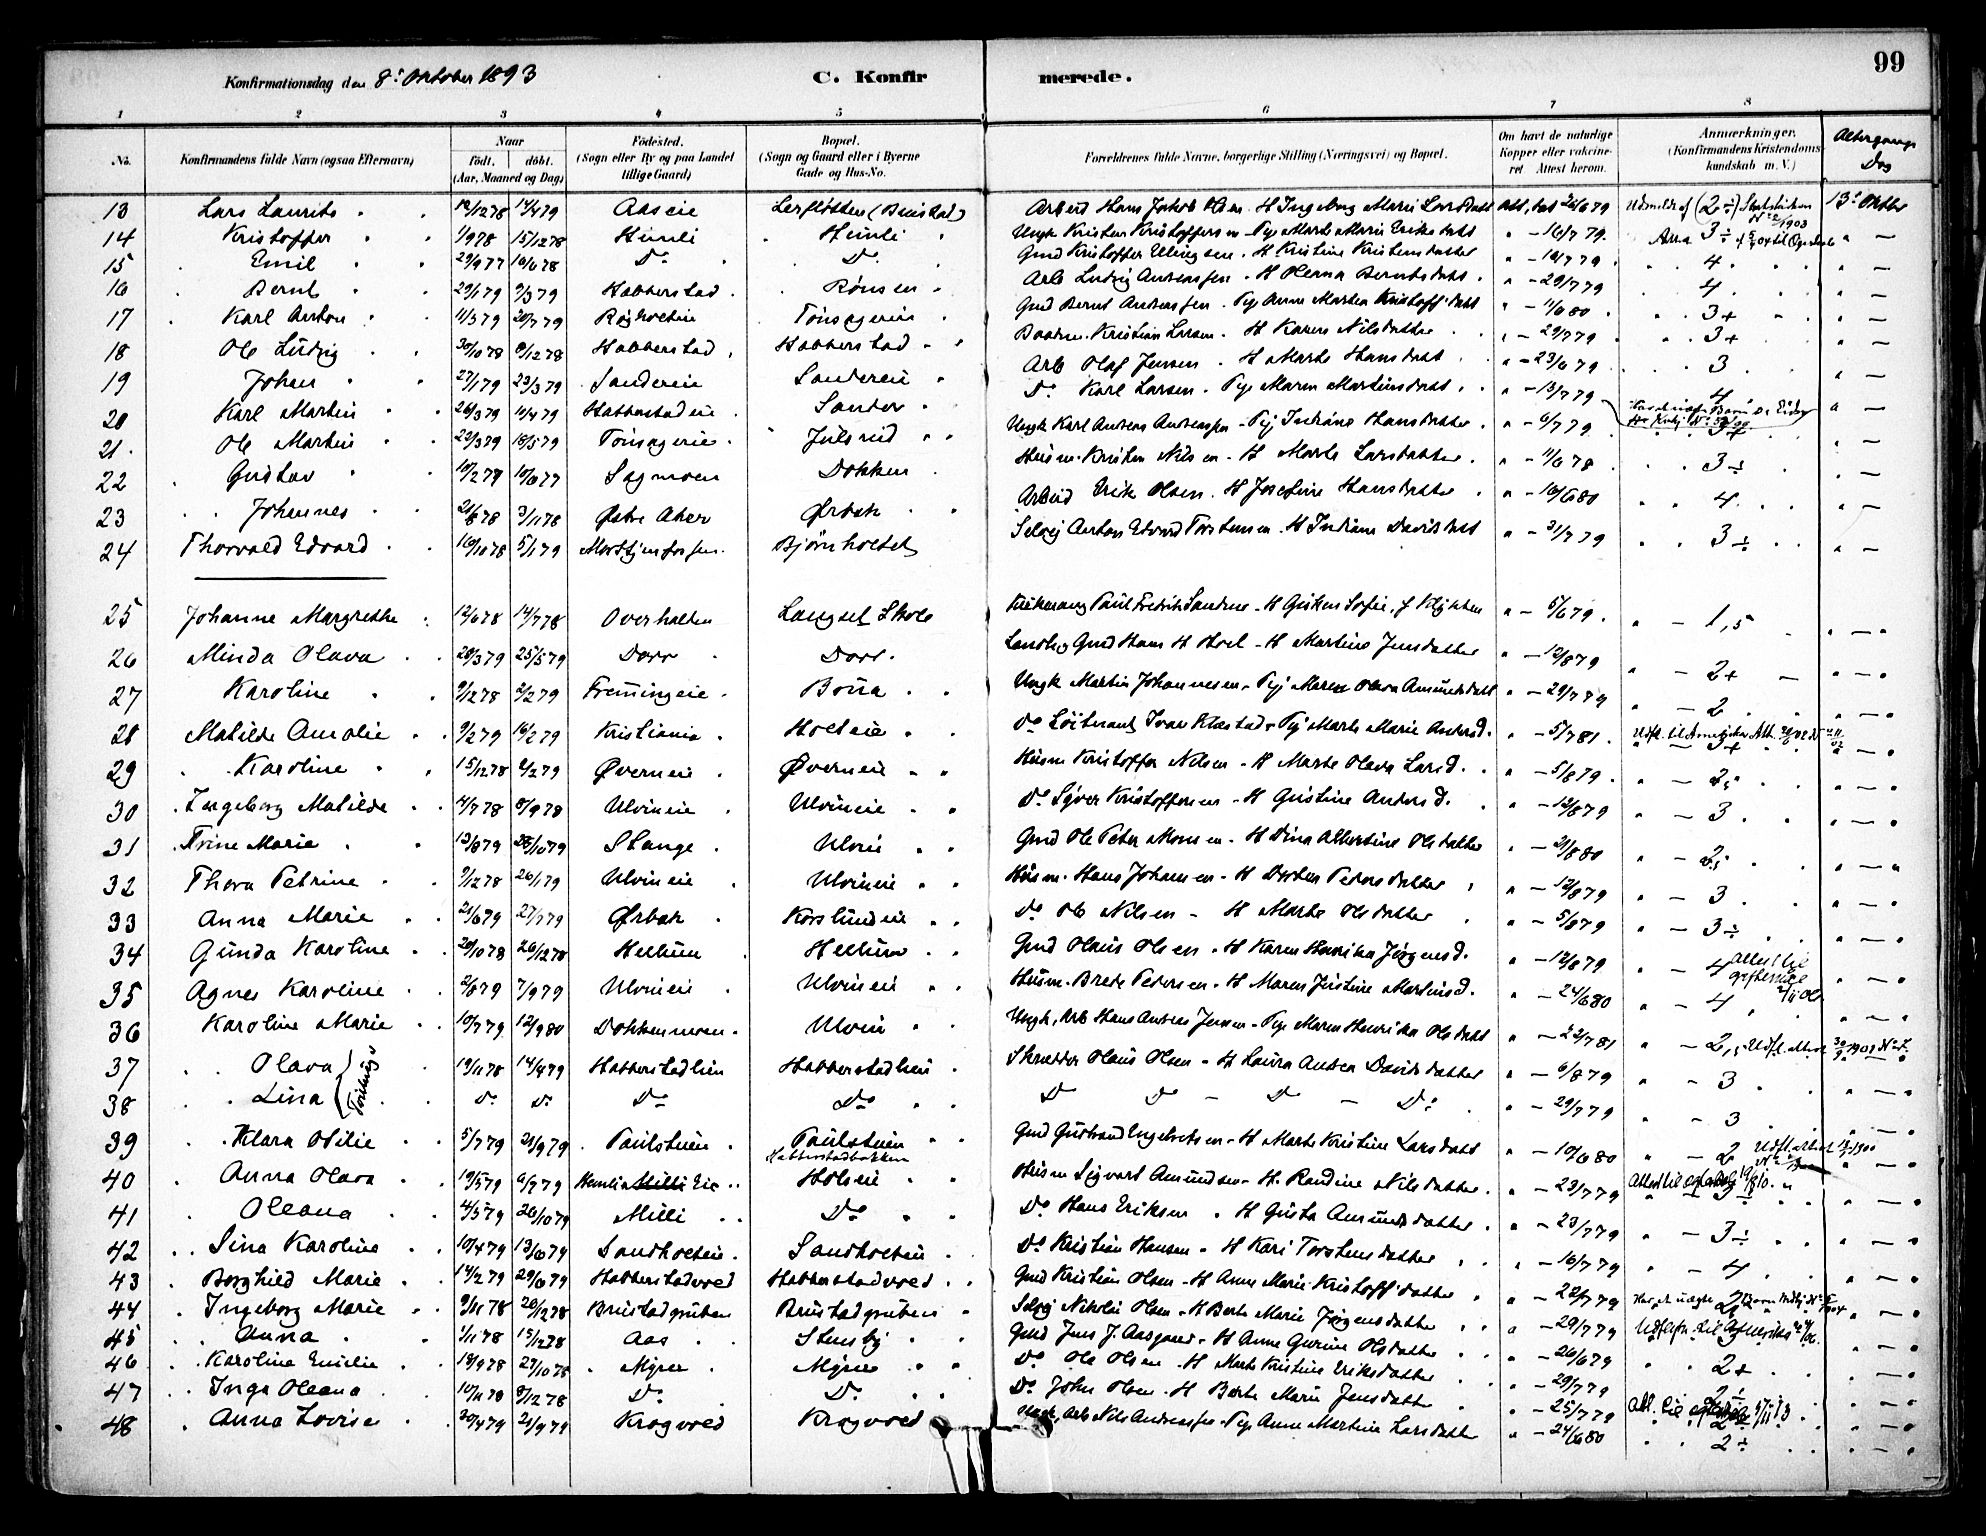 99
Konfirmationsdag den 8de Oktober 1893 C. Konfirmerede.
1 2 3 4 5 6 7 8
No. Konfirmandens fulde Navn (ogsaa Efternavn) Naar født, døbt. (Aar, Maaned og Dag) Fødested. (Sogn eller By og paa Landet tillige Gaard) Bopæl. (Sogn og Gaard eller i Byerne Gade og Hus-No. Forældrenes fulde Navne, borgerlige Stilling (Næringsvei) og Bopæl. Om havt de naturlige Kopper eller vaccineret Attest herom. Anmærkninger. (Konfirmandens Kristendomskundskab m. V.) Altergangs Dag
13 Lars Laurits 12/1278 14/479 Aaseie Arbeid Hans Jakob Olsen - H Ingeborg Marie Larsdatt 13de Oktbr
14 Kristoffer 1/978 15/1278 Hemli Hemli Ungk Kristen Kristoffersen - Pig Marte Marie Eriksdatt " - 16/779. 3 ÷ " -
15 Emil 29/977 Do Do Gmd Kristoffer Ellingsen - H Kristine Kristensdatter 4 " -
16 Bernt 29/179 9/379 Habberstad Rønsen Arb Ludvig Andreassen - H Oleana Berntsdatt " - 29/779 4 " -
17 Karl Anton 11/379 20/779 Røgholteie Gmd Bernt Andreassen Pige Anne Marthea Kristoffdatt " - 11/680 3+ " -
18 Ole Ludvig 30/1078 8/1278 Habberstad Habberstad Kristian Larsen - H Karen Nilsdatter " - 29/779 3+ " -
19 Johan 27/179 23/379 Sandereie Sandereie Arb Olaf Jensen - H Marte Hansdatt " - 23/679 3 " -
20 Karl Martin 26/379 14/479 Habberstadeie Sander Do Karl Larsen - Pige Maren Martinsdatt " - 13/779 4 " -
21. Ole Martin 22/379 18/579 Tonsageie Julsrud Ungk Karl Andreas Andreassen - Pig Indiane Hansdatter " - 6/779 " -
22 Gustav 10/279 10/677 Sagmoen Dokken Husm. Kristen Nilsen - H Marte Larsdatter " - 11/678 3÷ " -
23 Johannes 21/878 3/1178 Østre Aker Ørbak Arbeid Erik Olsen - H Josefine Hansdatter " - 10/680 4 " -
24 Thorvald Edvard 16/1078 5/179 Bjørnholtet Selvej Anton Edvard Torstensen - H Indiane Davidsdatt " - 31/779 3÷ " -
25 Johanne Margrethe 12/678 14/778 Overhalden Langset Skole Kirkesang Paul Fredrik Sandnes - H Gisken Sofie, " - 5/679. 1,5 " - "
26 Minda Olava 20/379 25/579 Dorr Dorr. Gmd Hans H Hoel - H Martine Jensdatter " - 12/879 2+ " - "
27 Karoline 9/1278 2/279 Fremingeie Boua Ungk Martin Johannesen - Pig Maren Olava Amundsdatt " - 29/779 2 " - "
28 Matilde Amalie 9/279 16/279 Kristiania Holteie Do Løitnant Ivar Klæstad - Pig Marte Marie Andersd. " - 5/781 3+ " - "
29 Karoline 15/1278 2/279 Øverneie Øverneie Husm Kristoffer Nilsen - H Marte Olava Larsd. " - 5/879. 2,5 " - "
30 Ingeborg Matilde 4/778 8/978 Ulvineie Ulvineie Do Syver Kristoffersen - H Gustine Andersd. " - 12/879 3 " - "
31 Trine Marie 13/879 28/1079 Stange Ulvin Gmd Ole Peter Monsen - H Dina Albertine Olsdatter " - 21/880 2,5 " - "
32 Thora Petrine 9/1278 26/179 Ulvineie Ulvineie Husm. Hans Johansen - H Dorthea Pedersdatter " - 12/879 3 " - "
33 Anna Marie 21/679 27/779 Ørbak Korslundeie Do Ole Nilsen - H Marte Olsdatter " - 5/879 3÷ " - "
34 Gunda Karoline 20/1078 26/1278 Hellum Hellum Gmd Olaus Olsen - H Karen Henrika Jørgensd. " - 12/879 4 Attest til giftermaal " - "
35 Agnes Karoline 2/879 7/979 Ulvineie Ulvineie Husm. Brede Pedersen - H Maren Justine Martinsd. " - 24/680 4 " - "
36 Karoline Marie 10/779 12/980 Dokkenmoen Ulvin Ungk, Arb Hans Andreas Jensen - Pige Maren Henrika Olsdatt " - 22/781 2,5 " - "
37 Olava } Tvillinger 19/1178 14/479 Habberstadlien Habberstadlien Skrædder Olaus Olsen - H Laura Andrea Davidsdatter " - 6/879 3 " - "
38 Lina do. do. Do Do D D - D - Do " - 29/779 3 " - "
39 Klara Otilie 5/779 21/979 Paulstuen Paulstuen Habberstadbakken Gmd Gulbrand Engebretsen - H Marte Kristine Larsdatt " - 10/680 2 " - "
40 Anna Olava 19/579 6/779 Hemlie Milli Eie Holseie Husm Sigvart Amundsen - H. Randine Nilsdatter " - 23/779 3 " - "
41 Oleana 4/579 26/1079 Milli Do Do Hans Eriksen - H Gusta Amundsdatter " - 23/779 3÷ " - "
42 Sina Karoline 10/479 13/679 Sandholteie Sandholteie Do Kristian Hansen - H Kari Torstensdatter " - 16/779 4 " - "
43 Borghild Marie 14/279 29/679 Habberstadvæd Habberstadvæd Gmd Kristian Olsen - H Anne Marie Kristoffdatter " - 22/779 " - "
44 Ingeborg Marie 9/1178 26/1278 Brustadgruben Brustadgruben Selvej Nikolai Olsen - H Berte Marie Jørgensdatter " - 29/779 " - "
45 Anna 1/1178 15/1278 Aas Stensby Gmd Jens J. Aasgaard - H Anne Gurine Olsdatter " - 26/679 " - "
46 Karoline Emilie 18/978 27/1078 Myrer Myrer Do Ole Olsen - H Marte Kristine Eriksdatter " - 29/779 2+ " - "
47 Inga Oleana 10/1178 8/1278 Do Do Do John Olsen - H Berte Marie Jensdatter " - 25/779 " - "
48 Anna Lovise 20/479 21/979 Krogvoed Krogvoed Ungk, Arb Nils Andreassen - Pige Anne Martine Larsdatter " - 24/680 2÷ " - "